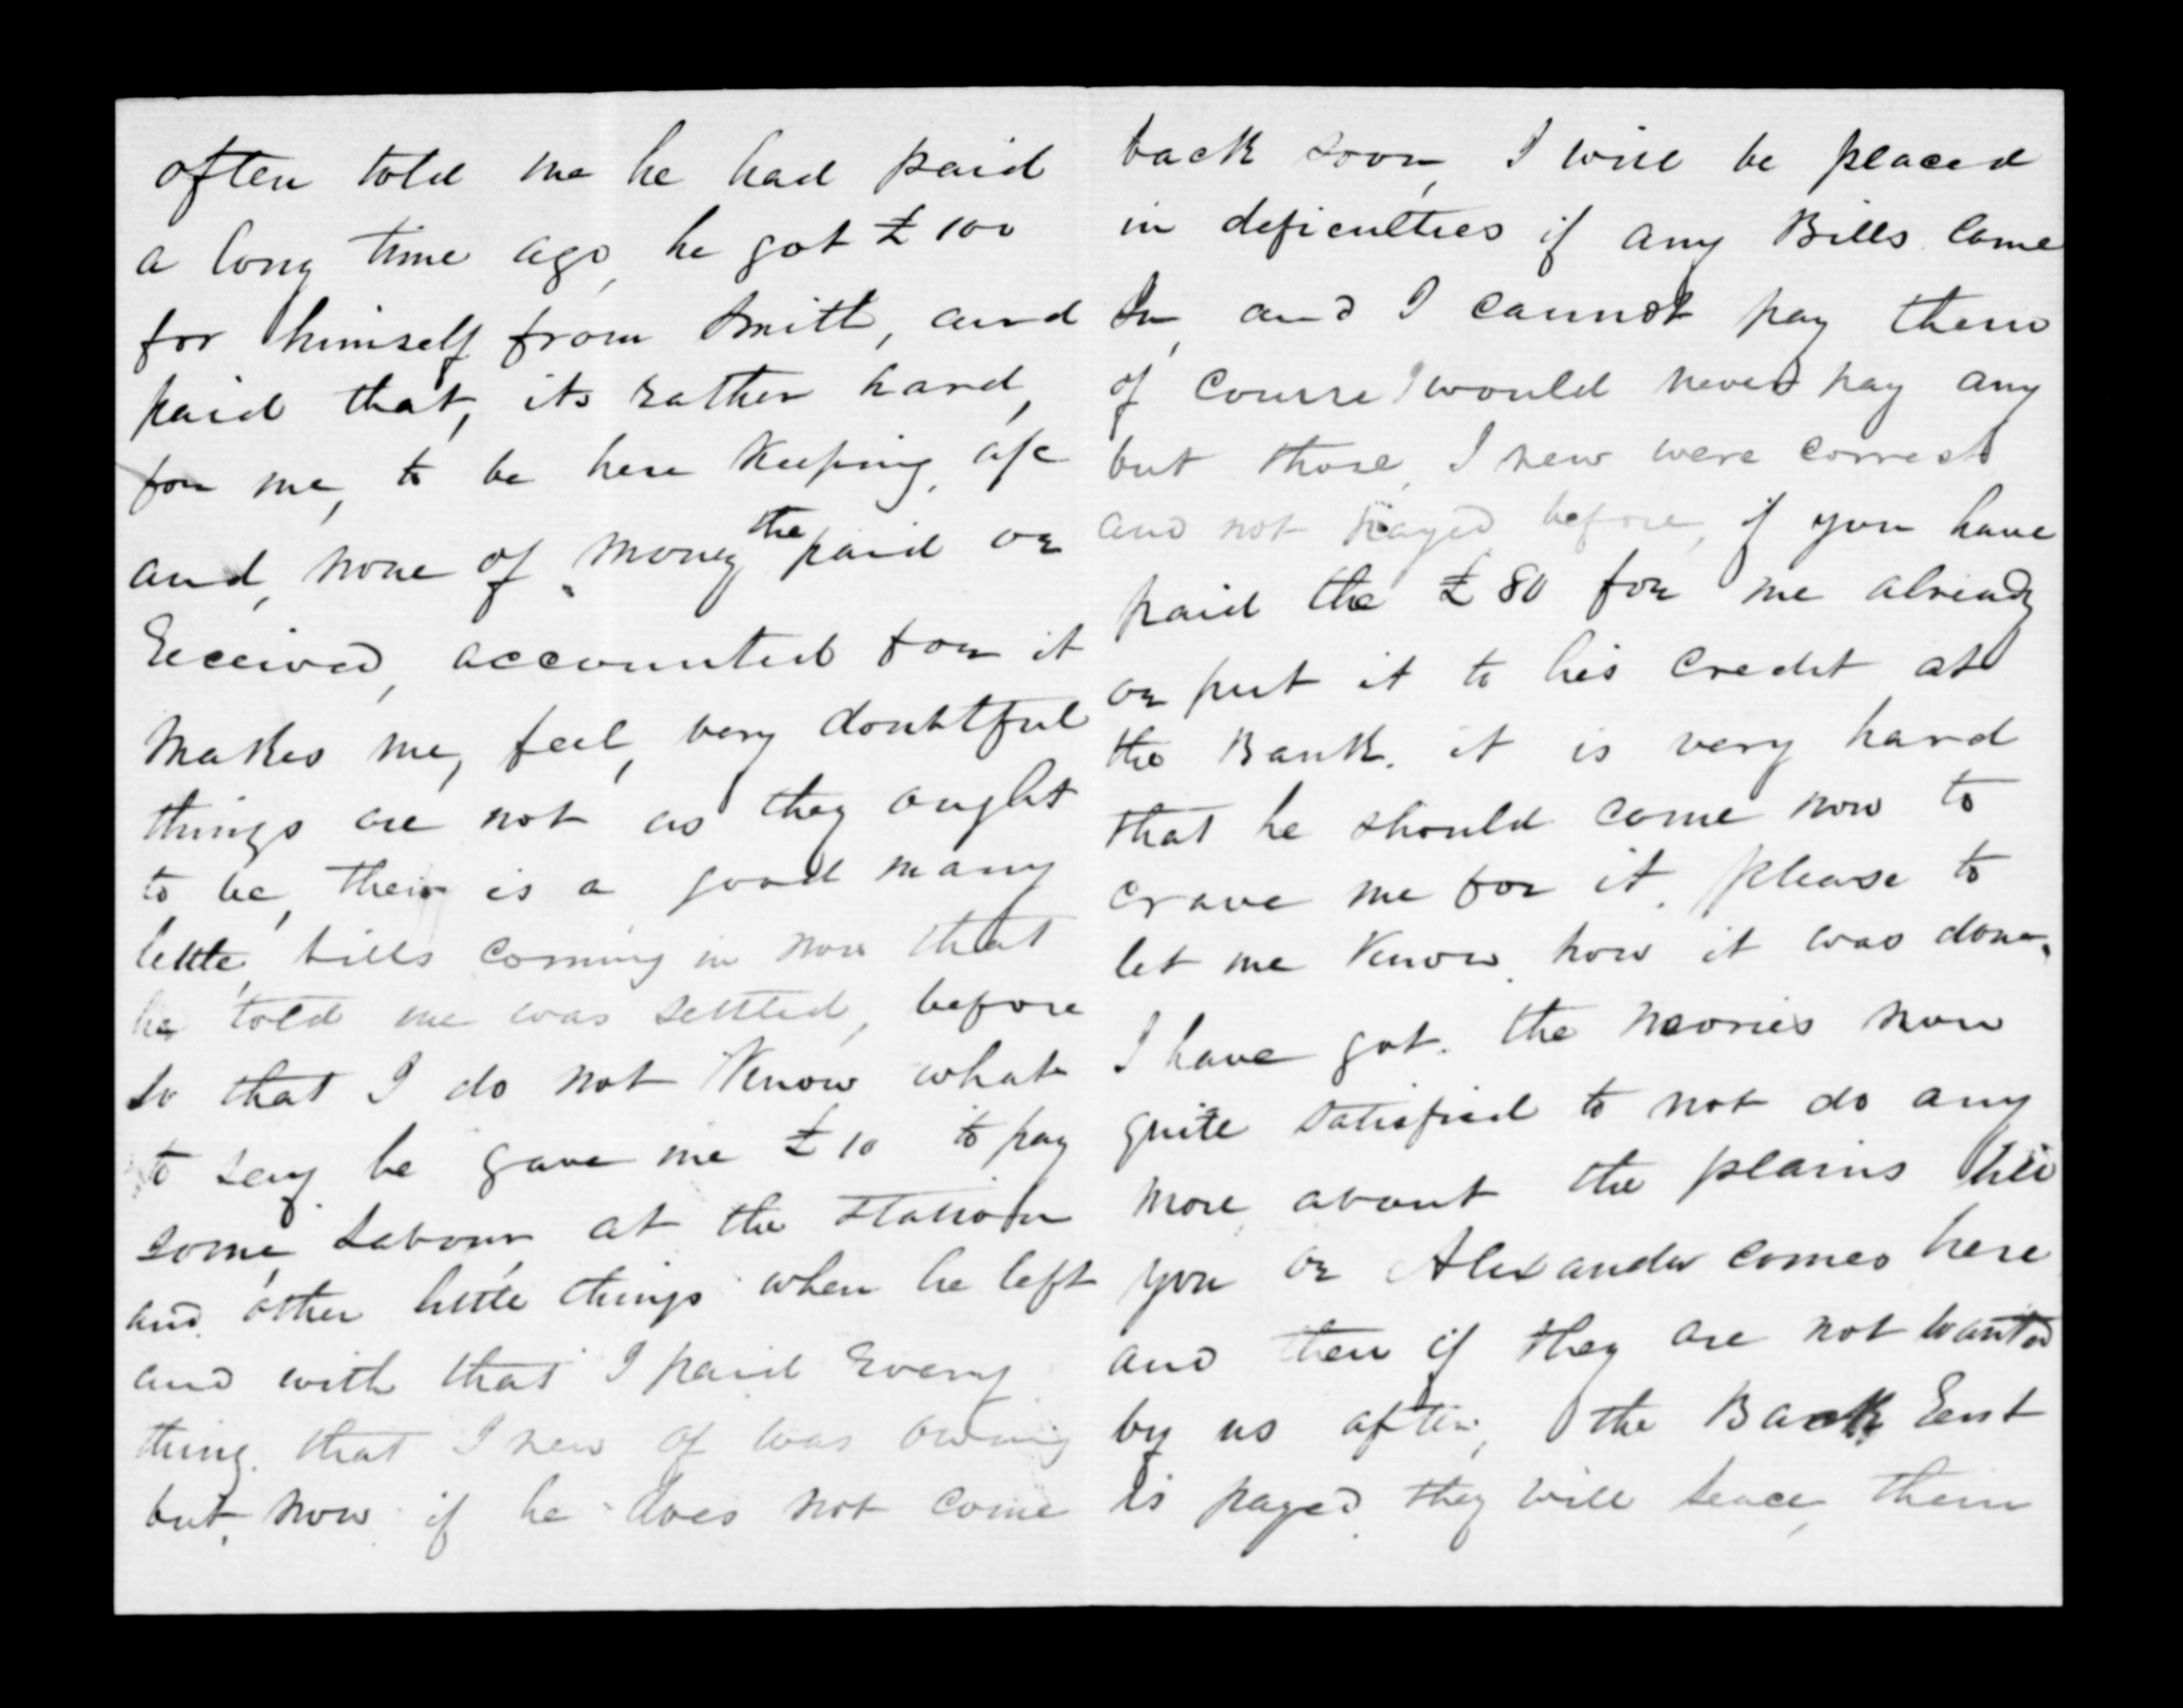 often told me he had paid
a long time ago, he got £100
for himself from Smith, and
paid that, its rather hard,
for me, to be here keeping, a/c
and, none of the money paid or
Received, accounted for it
makes me, feel, very doubtful
things are not as they aught
to be, their is a good many
little, bills coming in now that
he told me was settled, before
so that I do not know what
to say he gave me £10 to pay
some, Labour, at the station
and other little things when he left
and with that I paid Every
thing that I new of was owing
but, now if he does not come
back soon, I will be placed
in deficulties if any Bills Come
In, and I cannot pay them
of Course I would never pay any
but those, I new were correct
and not payed before, if you have
paid the £80 for me already
or put it to his Credit at
the Bank. it is very hard
that he should come now to
crave me for it. please to
let me know how it was done.
I have got. the maories now
quite satisfied to not do any
more about the plains till
you or Alexander comes here
and then if they are not wanted
by us after, the Back Rent
is payed they will them